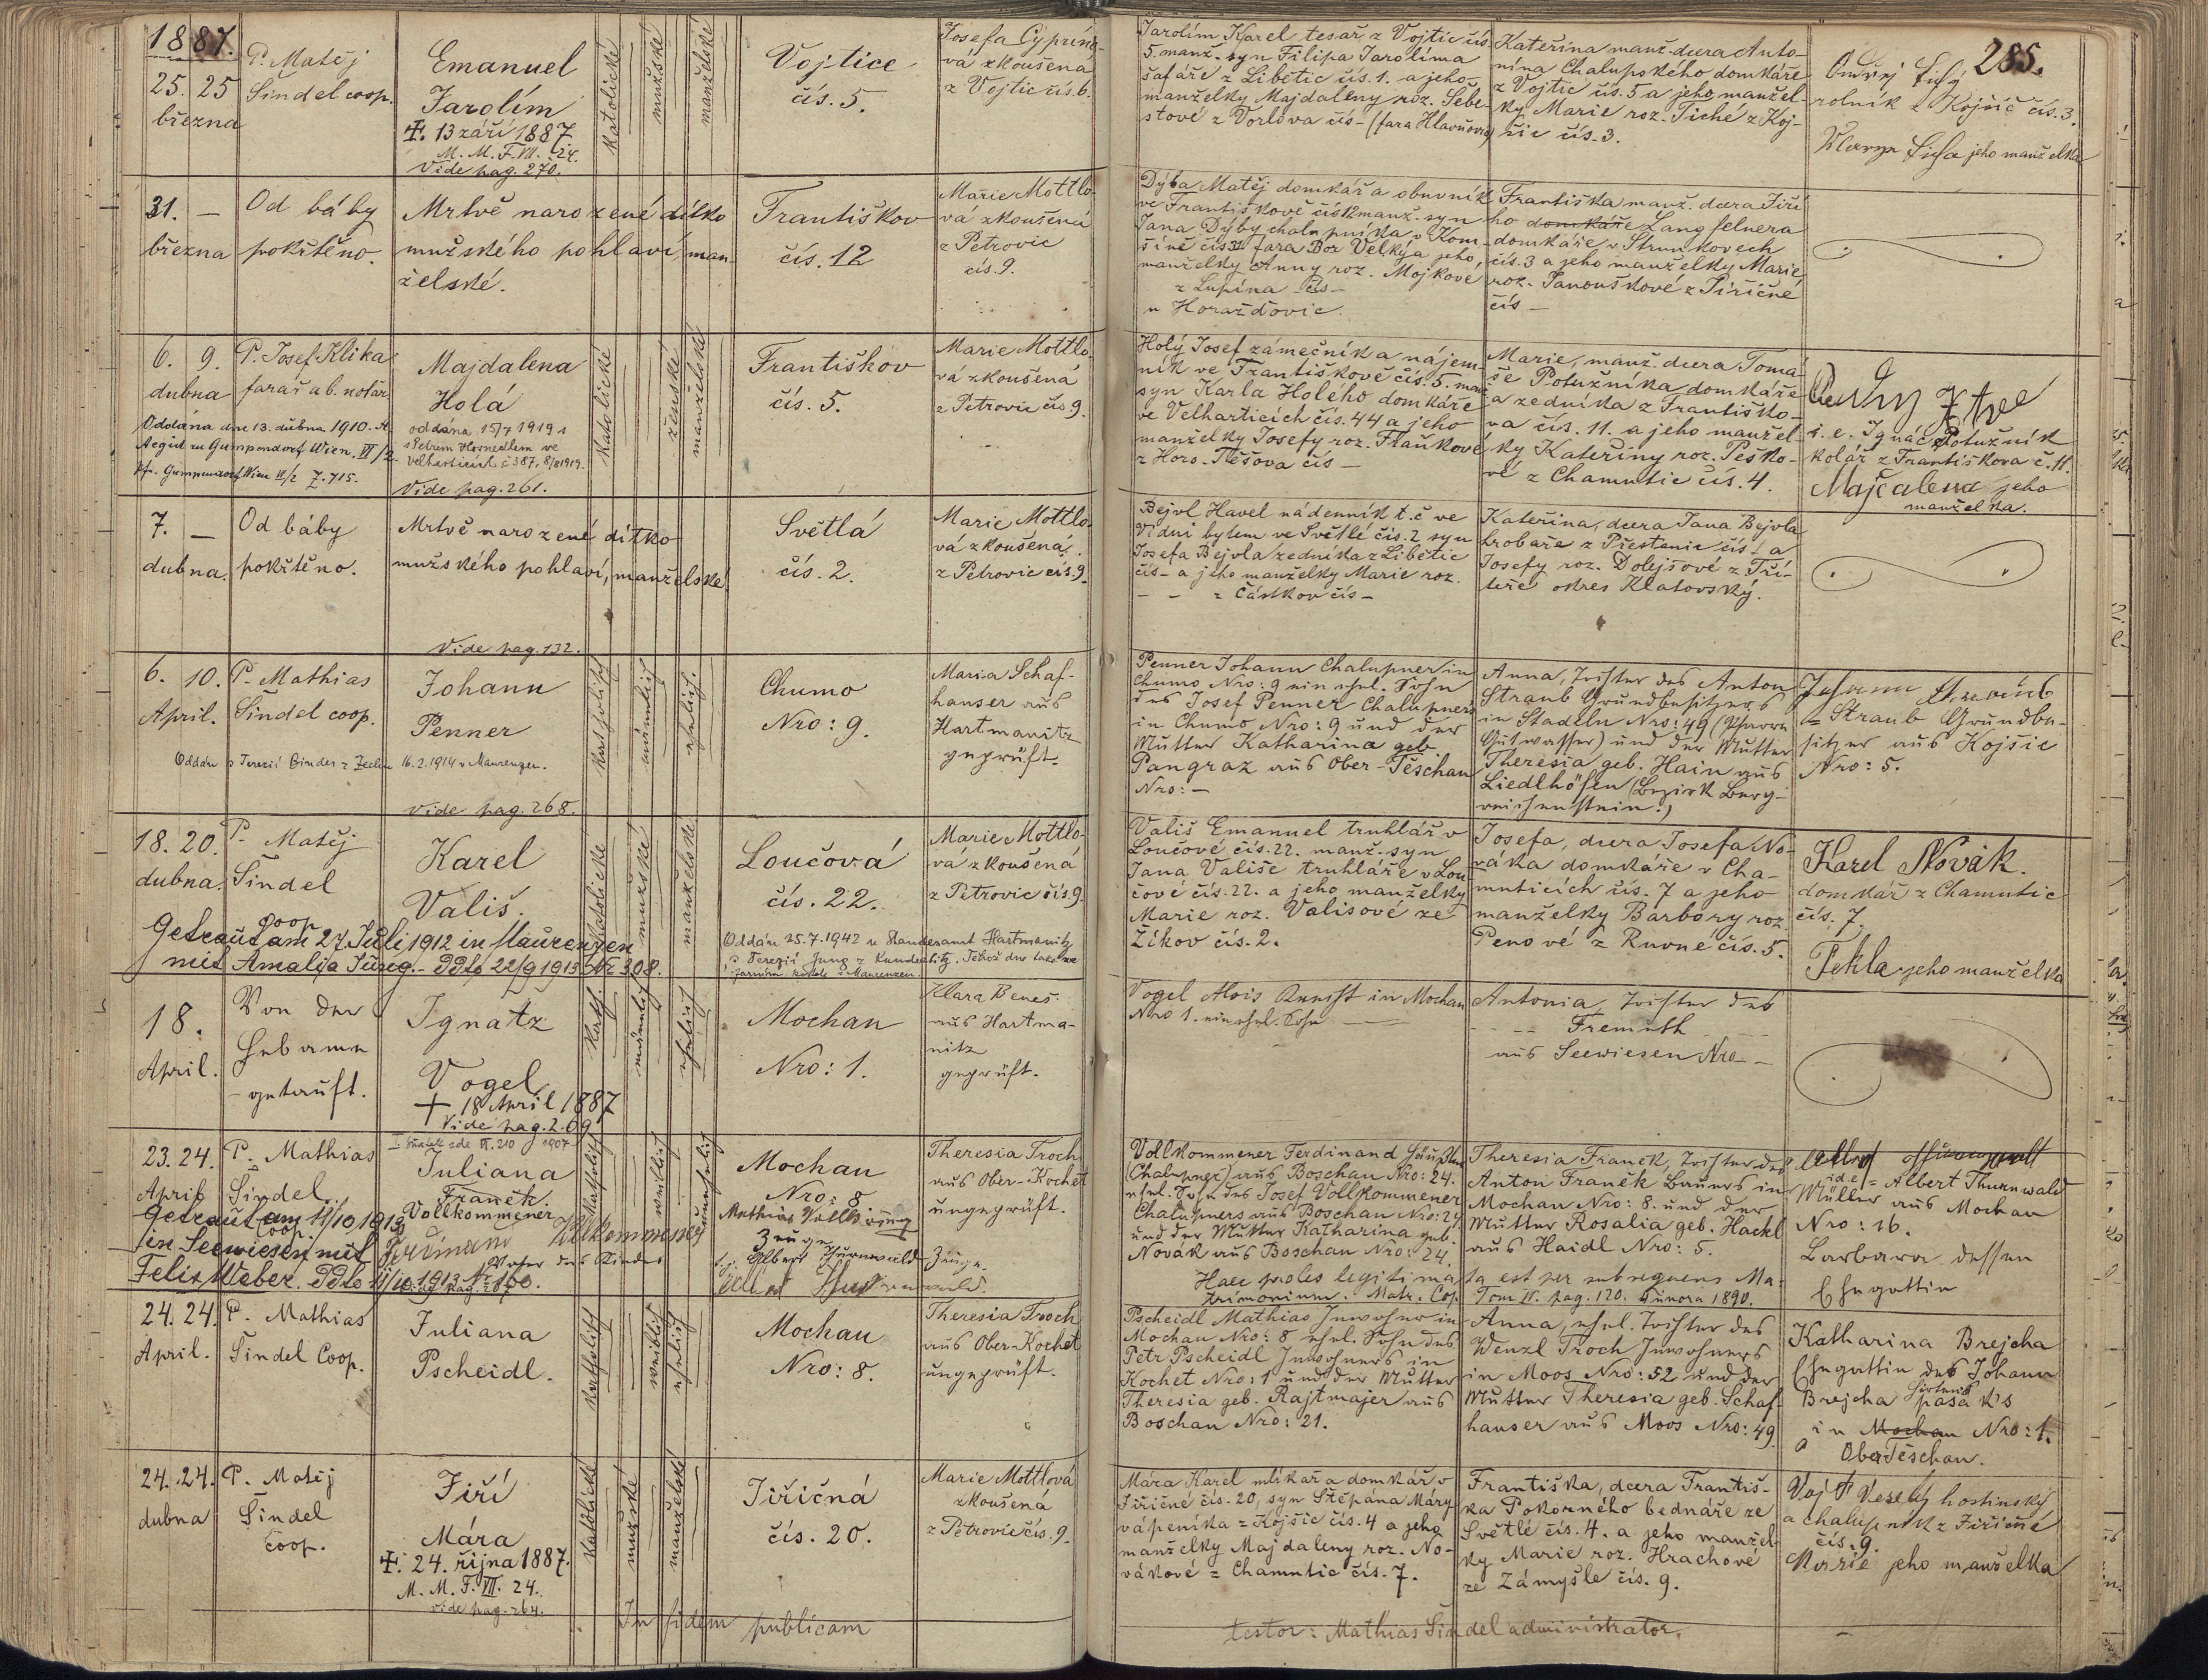 1887.
285.
25. 25
března
P. Matěj
Šindel coop.
Emanuel
Jarolím
13 září 1887
M. M. F. VII. 24.
Vide pag. 270.
katolické
mužské
manželské
Vojtice
čís. 5.
Josefa Cyprino-
vá zkoušená
z Vojtic čís. 6.
Jarolím Karel tesař z Vojtic čís
5. manž. syn Filipa Jarolíma
šafáře z Libětic čís. 1. a jeho
manželky Majdaleny roz. Šebe-
stové z Vorlova čís - (fara Hlavňovice)
Kateřina manž. dcera Anto-
nína Chalupského domkáře
z Vojtic čís. 5 a jeho manžel-
ky Marie roz. Tiché z Koj-
šic čís. 3.
Ondřej Tichý
rolník z Kojšic čís. 3.
jeho manželka
31. -
března
Od báby
pokřtěno.
Mrtvě narozené dítko
mužského pohlaví, man-
želské.
Františkov
čís. 12
Marie Mottlo-
vá zkoušená
z Petrovic
čís. 9.
Dýba Matěj domkář a obuvník
ve Františkově čís 12 manž. syn
Jana Dýby chalupníka v Kom-
šíně čís 31 fara Bor Velký a jeho
manželky Anny roz. Mojkové
z Lupína čís -
u Horažďovic.
Františka manž. dcera Jiří-
ho domkáře Langfelnera
domkáře v Strunkovech
čís. 3 a jeho manželky Marie
roz. Janouškové z Jiřičné
čís -
6. 9.
dubna
P. Josef Klika
farář a b. notář
Majdalena
Holá
Oddána dne 13. dubna 1910. St.
Aegid zu Gumpendorf Wien. VI/2.
Pfr. Gumpendorf Wien VI/2 Z. 715.
oddána 15/7 1919
s Petrem Hornedlem ve
Velharticích č 387, 8/8 1919.
Vide pag. 261.
Katolické
ženské
manželské
Františkov
čís. 5.
Marie Mottlo-
vá zkoušená
z Petrovic čís 9.
Holý Josef zámečník a nájem-
ník ve Františkově čís. 5. manž
syn Karla Holého domkáře
ve Velharticích čís. 44 a jeho
manželky Josefy roz. Fraňkové
z Horo. Těšova čís -
Marie, manž. dcera Tomá-
še Potužníka domkáře
a zedníka z Františko-
va čís. 11. a jeho manžel-
ky Kateřiny roz. Peško-
vé z Chamutic čís. 4.
i. e. Ignác Potužník
kolář z Františkova č. 11.
Majdalena jeho
manželka.
7. -
dubna.
Od báby
pokřtěno.
Mrtvě narozené dítko
mužského pohlaví, manželské.
Světlá
čís. 2.
Marie Mottlo-
vá zkoušená
z Petrovic čís. 9.
Bejvl Havel nádenník t. č ve
Vídni bytem ve Světlé čís. 2 syn
Josefa Bejvla zedníka z Libětic
čís - a jeho manželky Marie roz.
- - z Částkov čís -
Kateřina, dcera Jana Bejvla
hrobaře z Přestanic čís 1 a
Josefy roz. Dolejšové z Tří-
teře okres Klatovský.
Vide pag. 132.
6. 10.
April.
P. Mathias
Šindel coop.
Johann
Penner
Oddán s Terezií Binder z 16.2.1914 v Maurenzen.
Vide pag. 268.
katholisch
männlich
ehelich.
Chumo
Nro: 9.
Maria Schaf-
hauser aus
Hartmanitz
geprüft.
Penner Johann Chalupner in
Chumo Nro: 9 ein ehel. Sohn
des Josef Penner Chalupners
in Chumo Nro: 9 und der
Mutter Katharina geb.
Pangraz aus Ober-Těschau
Nro: -
Anna, Tochter des Anton
Straub Grundbesitzers
in Stadeln Nro: 49 (Pfarre
Gutwasser) und der Mutter
Theresia geb. Hain aus
Liedlhöfen (Bezirk Berg-
reichenstein.)
Johann Straub
= Straub Grundbe-
sitzer aus Kojšic
Nro: 5.
18. 20.
dubna.
P. Matěj
Šindel
coop
Karel
Vališ.
Getraut am 27. Juli 1912 in Maurenzen
mit Amalia Jung. - DDto 22/9 1913 Nr 308.
Katolické
mužské
manželské
Loučová
čís. 22.
Oddán 25.7.1942 u Standesamt Hartmanitz
s Terezií Jung z Kundratitz. Téhož dne také ve
farním kostele v Maurenzen.
Marie Mottlo-
vá zkoušená
z Petrovic čís. 9.
Vališ Emanuel truhlář v
Loučové čís. 22. manž. syn
Jana Vališe truhláře v Lou-
čové čís. 22. a jeho manželky
Marie roz. Valisové ze
Žikov čís. 2.
Josefa, dcera Josefa No-
váka domkáře v Cha-
muticích čís. 7 a jeho
manželky Barbory roz
Penové z Rovné čís. 5.
Karel Novák.
domkář z Chamutic
čís. 7.
Tekla jeho manželka
18.
April.
Von der
Hebame
getauft.
Ignatz
Vogel
+ 18 April 1887
Vide pag. 209
Kath.
männlich
ehelich
Mochau
Nro: 1.
Klara Beneš
aus Hartma-
nitz
geprüft.
Vogel Alois Knecht in Mochau
Nro 1. ein ehel. Sohn
Antonia, Tochter des
- - Fremuth
aus Seewiesen Nro -
23. 24.
April
P. Mathias
Šindel
Coop.
Juliana
Franek
Vollkommener
Getraut am 11/10 1913
in Seewiesen mit
Felix Weber. DDto 11/10. 1913. Nr 160.
Ferdinand Vollkommener
Vater des Kindes
Katholisch
weiblich
unehelich
Mochau
Nro: 8
Zeuge
Albert Thurnwald Zeuge.
Theresia Troch
aus Ober-Kochet
ungeprüft.
Vollkommener Ferdinand Häusler
(Chalupner) aus Boschau Nro: 24.
ehel. Sohn des Josef Vollkommener
Chalupners aus Boschau Nro: 24
und der Mutter Katharina geb.
Novák aus Boschau Nro: 24.
Theresia Franek, Tochter des
Anton Franěk Bauers in
Mochau Nro: 8. und der
Mutter Rosalia geb. Hackl
aus Haidl Nro: 5.
Haec proles legitimata est per subsequens Ma-
trimonium. Matr. Cop. Tom II. pag. 120. 4 února 1890.
id e = Albert Thurnwald
Müller aus Mochau
Nro: 16.
Barbara dessen
Ehegattin
24. 24.
April.
P. Mathias
Šindel Coop.
Juliana
Pscheidl.
Katholisch
weiblich
ehelich
Mochau
Nro: 8.
Theresia Troch
aus Ober-Kochet
ungeprüft.
Pscheidl Mathias Inwohner in
Mochau Nro: 8 ehel. Sohn des
Petr Pscheidl Inwohners in
Kochet Nro: 1 und der Mutter
Theresia geb. Rajtmajer aus
Boschau Nro: 21.
Anna, ehel. Tochter des
Wenzl Troch Inwohners
in Moos Nro: 52 und der
Mutter Theresia geb. Schaf-
hauser aus Moos Nro: 49.
Katharina Brejcha
Ehegattin des Johann
Brejcha pasák's
in Mochau Nro: 1.
Ober Těschau.
24. 24.
dubna
P. Matěj
Šindel
coop.
Jiří
Mára
24. října 1887.
M. M. F. VII. 24.
vide pag. 264.
Katolické
mužské
manželské
Jiřičná
čís. 20.
Marie Mottlová
zkoušená
z Petrovic čís. 9.
Mára Karel mlékař a domkář v
Jiřičné čís. 20, syn Štěpána Máry
vápeníka z Kojšic čís. 4 a jeho
manželky Majdaleny roz. No-
vákové z Chamutic čís. 7.
Františka, dcera Františ-
ka Pokorného bednáře ze
Světlé čís. 4. a jeho manžel-
ky Marie roz. Hrachové
ze Zámyšle čís. 9.
Vojt Veselý hostinský
a chalupník z Jiřičné
čís. 9.
Marie jeho manželka
In fidem publicam
testor: Mathias Šindel administrator.